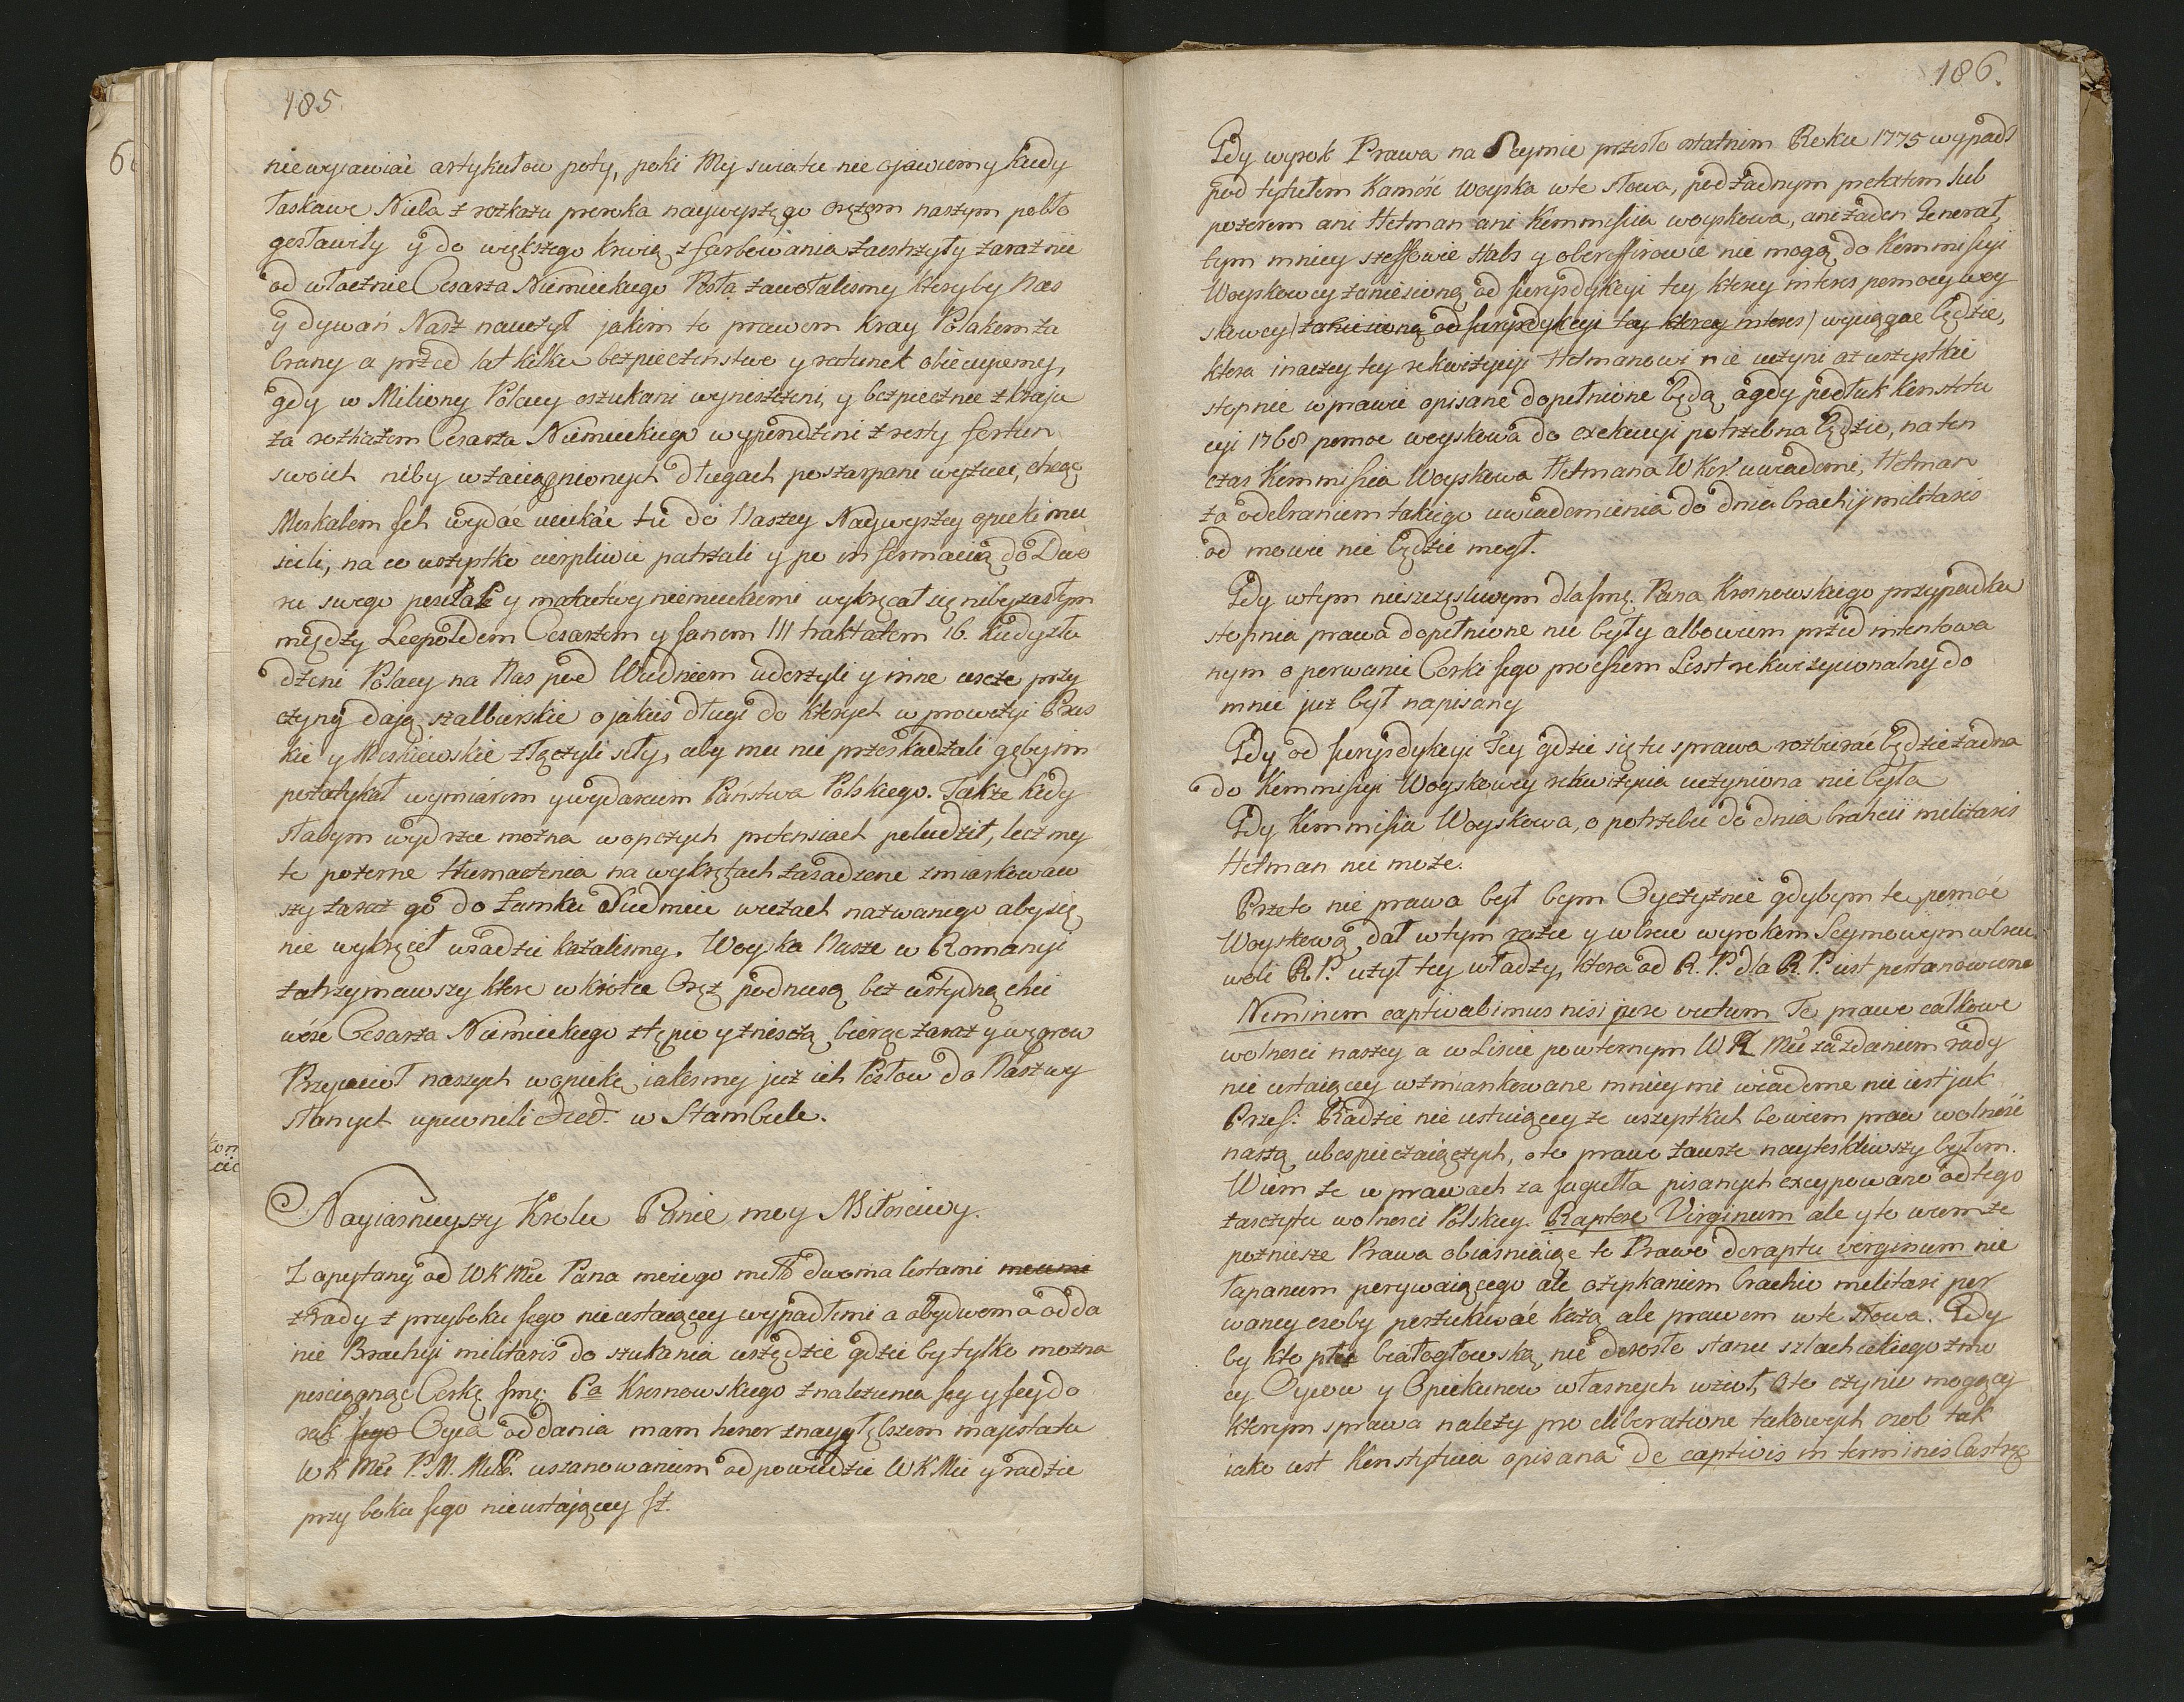 185
niewyiawiać artykułow poty, poki My swiatu nie oiawiemy kiedy
łaskawe Nieba z rozkazu proroka naywyższego orężom naszym pobło
gosławiły y do większego krwią z farbowania zaostrzyły zaraz nie
od włocznie Cesarza Niemieckiego Posła zawołalismy ktoryby Nas
y dywań Nasz nauczył jakim to prawem Kray Polakom za
brany a przed lat kilka bezpieczenstwo y ratunek obiecuiemy,
gdy w Miliony Polacy oszukani wyniszczeni, y bezpiecznie z kraju
za rozkazem Cesarza Niemieckiego wypendzeni z resty fortun
swoich niby w zaciągnionych długach poszarpani wyzuci, chcąc
Moskalom Ich wydać uciekać tu do Naszey Naywyzszey opieki mu
sieli, na co wszystko cierpliwie patrzali y po informacią do Dwo
ru swego posłał y matactwy niemieckiemi wykręcał się niby zastym
między Leopoldem Cesarzem y Janem III traktatem 16. kiedy złu
dzeni Polacy na Nas pod Wiedniem uderzyli y inne uscze przy
czyny dają szalbierskie o jakies długi do ktorych w prowczyi Prus
kie y Moskiewskie złączyli siły, aby mu nie przeskadzali gęby im
pozatykał wymiarem y wydarciem Państwa Polskiego. Także kiedy
słabym wydrze można w opczych pretensiach poludził, lecz my
te pozorne tłumaczenia na wykrętach zasadzone zmiarkowaw
szy zaraz go do Zamku Siedmiu wieżach nazwanego aby się
nie wykręcił wsadzić kazalismy. Woyska Nasze w Romanyi
zatrzymawszy ktore w krótce Oręż podniosą bez wstydną chci
wość Cesarza Niemieckiego złępio y zniesczą, biorąc zaraz y węgrow
Przyiacioł naszych w opiekę, iakesmy już ich Posłow do Nas wy
słanych upewnili Dzed. w Stambule.
Nayiasnieyszy Krolu Panie moy Miłosciwy.
Zapytany od WKMci Pana moiego miłł dwoma listami meumi
z Rady z przyboku Jego nieustaiącey wypadłemi a obydwoma o odda
nie Brachyi militaris do szukania wszędzie gdzie by tylko mozna
posciągnąć Corkę Jmę: Pa Krosnowskiego znalezienia Jey y Jey do
rąk Jego Oyca oddania mam honor z naygłębszem majestatu
WKMci P.M. Miłł. uszanowaniem odpowiedzie WKMci y radzie
przy boku Jego nieustaiącey Jż.
186.
Gdy wyrok Prawa na Seymie przeszło ostatnim Roku 1775 wypadł
pod tytułem Kamość Woyska w te słowa, pod żadnym pretextem lub
pozorem ani Hetman ani Kommissia woyskowa, ani żaden Generał,
tym mniey szeffowie Stabs y oberofficirowie nie mogą do Kommissyi
Woyskowey zaniesioną od Juryzdykcyi tey ktorey interes pomocy woy
skowey (zaniesioną od Juryzdykcyi tey ktorey interes) wyciągać będzie,
ktora inaczey tey rekwizycyi Hetmanowi nie uczyni az wszystkie
stopnie w prawie opisane dopełnione będą, a gdy podług Konstytu
cyi 1768 pomoc woyskowa do exekucyi potrzebna będzie, na ten
czas Kommissia Woyskowa Hetmana W Kor: uwiadomi, Hetman
za odebraniem takiego uwiadomienia do dnia brachij militaris
od mowić nie będzie mogł.
Gdy w tym nieszczęsliwym dla Jmę: Pana Krosnowskiego przypadku
stopnia prawa dopełnione nie były albowiem przed intentowa
nym o porwanie Corki Jego processem List rekwizycionalny do
mnie juz był napisany
Gdy od Juryzdykcyi Jey gdzie się tu sprawa rozbierać będzie żadna
do Kommissyi Woyskowey rekwizycia uczyniona nie była
Gdy Kommissia Woyskowa, o potrzebie do dnia brahcii militaris
Hetman nie może.
Przeto nie prawa był bym Oyczyznie gdybym te pomoć
Woyskową, dał w tym razie y wbrew wyrokom Seymowym wbrew
woli R.P. użył tey władzy, ktora od R. P. dla R. P. iest postanowiona
Neminem captivabimus nisi jure victum Te prawo całkowe
wolnosci naszey a w Liscie powtornym W K Mci za zdaniem rady
nie ustaiącey wzmiankowane mniey mi wiadome nie iest jak
Przes: Radzie nie ustaiącey ze wszystkich bowiem praw wolność
naszą ubespieczaiączych, o to prawo zawsze naytęskliwszy byłem.
Wiem ze w prawach za Jagiełła pisanych excypowano od tego
zasczytu wolnosci Polskiey. Raptore Virginum ale y to wiem ze
poznieisze Prawa obiasniaiąc to Prawo de raptu virginum nie
łapaniem porywaiącego ale ozyskaniem brachio militari por
waney osoby poszukiwać każą ale prawem w te słowa. Gdy
by kto płeć białogłowską nie dorosłe stanu szlacheckiego z mo
cy Oycow y Opiekunow własnych wziął, o to czynić mogący
ktorym sprawa należy pro eliberatione takowych osob tak
iako iest Konstytucia opisana de captivis in terminis Castre